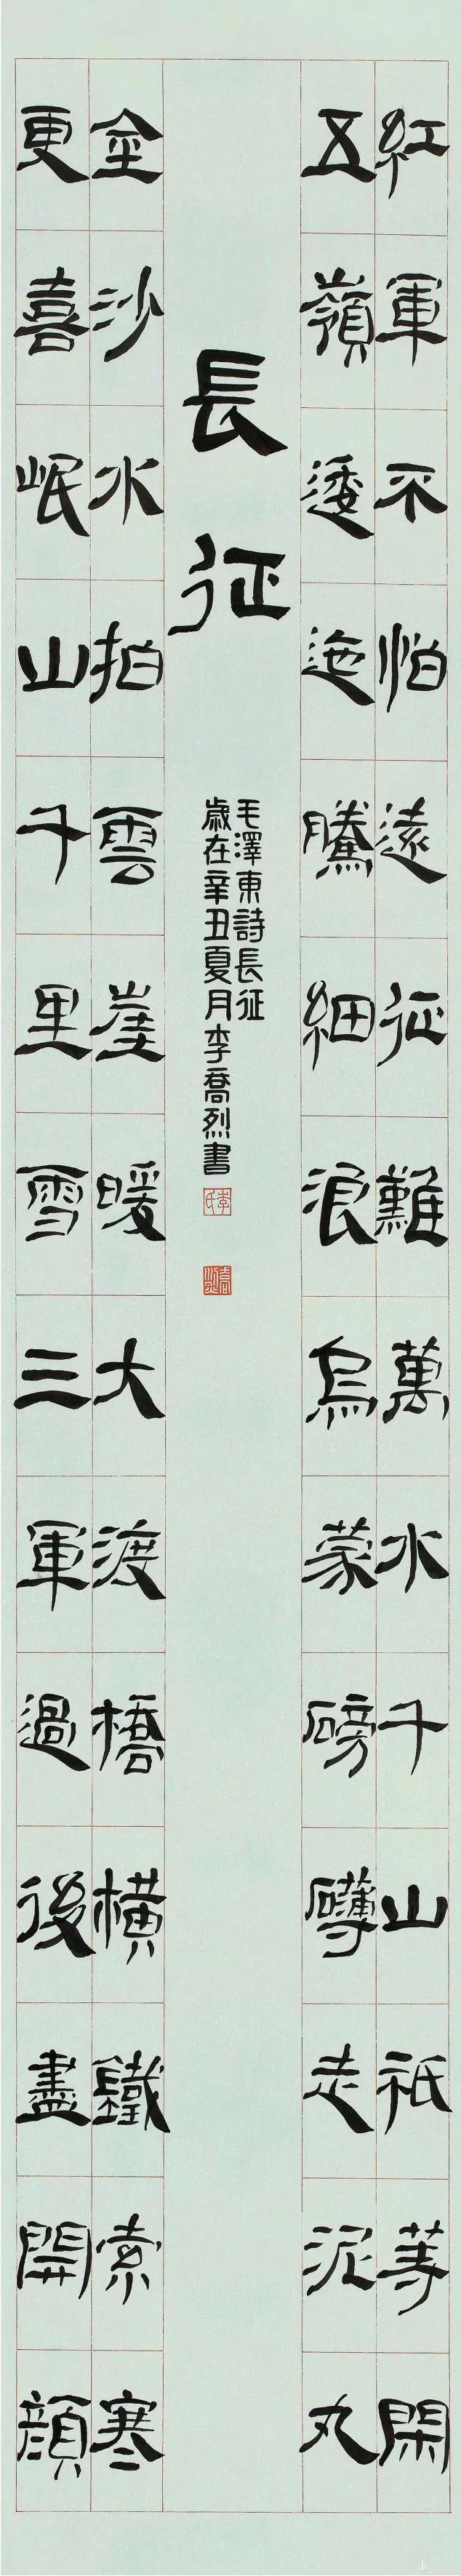 紅軍不怕遠征難萬水千山祇等閑
五嶺逶迤騰細浪烏蒙磅礴走泥丸
長征
毛澤東詩長征
歲在辛丑夏月李喬烈書
金沙水拍雲崖暖大渡橋橫鐵索寒
更喜岷山千里雪三軍過後盡開顏